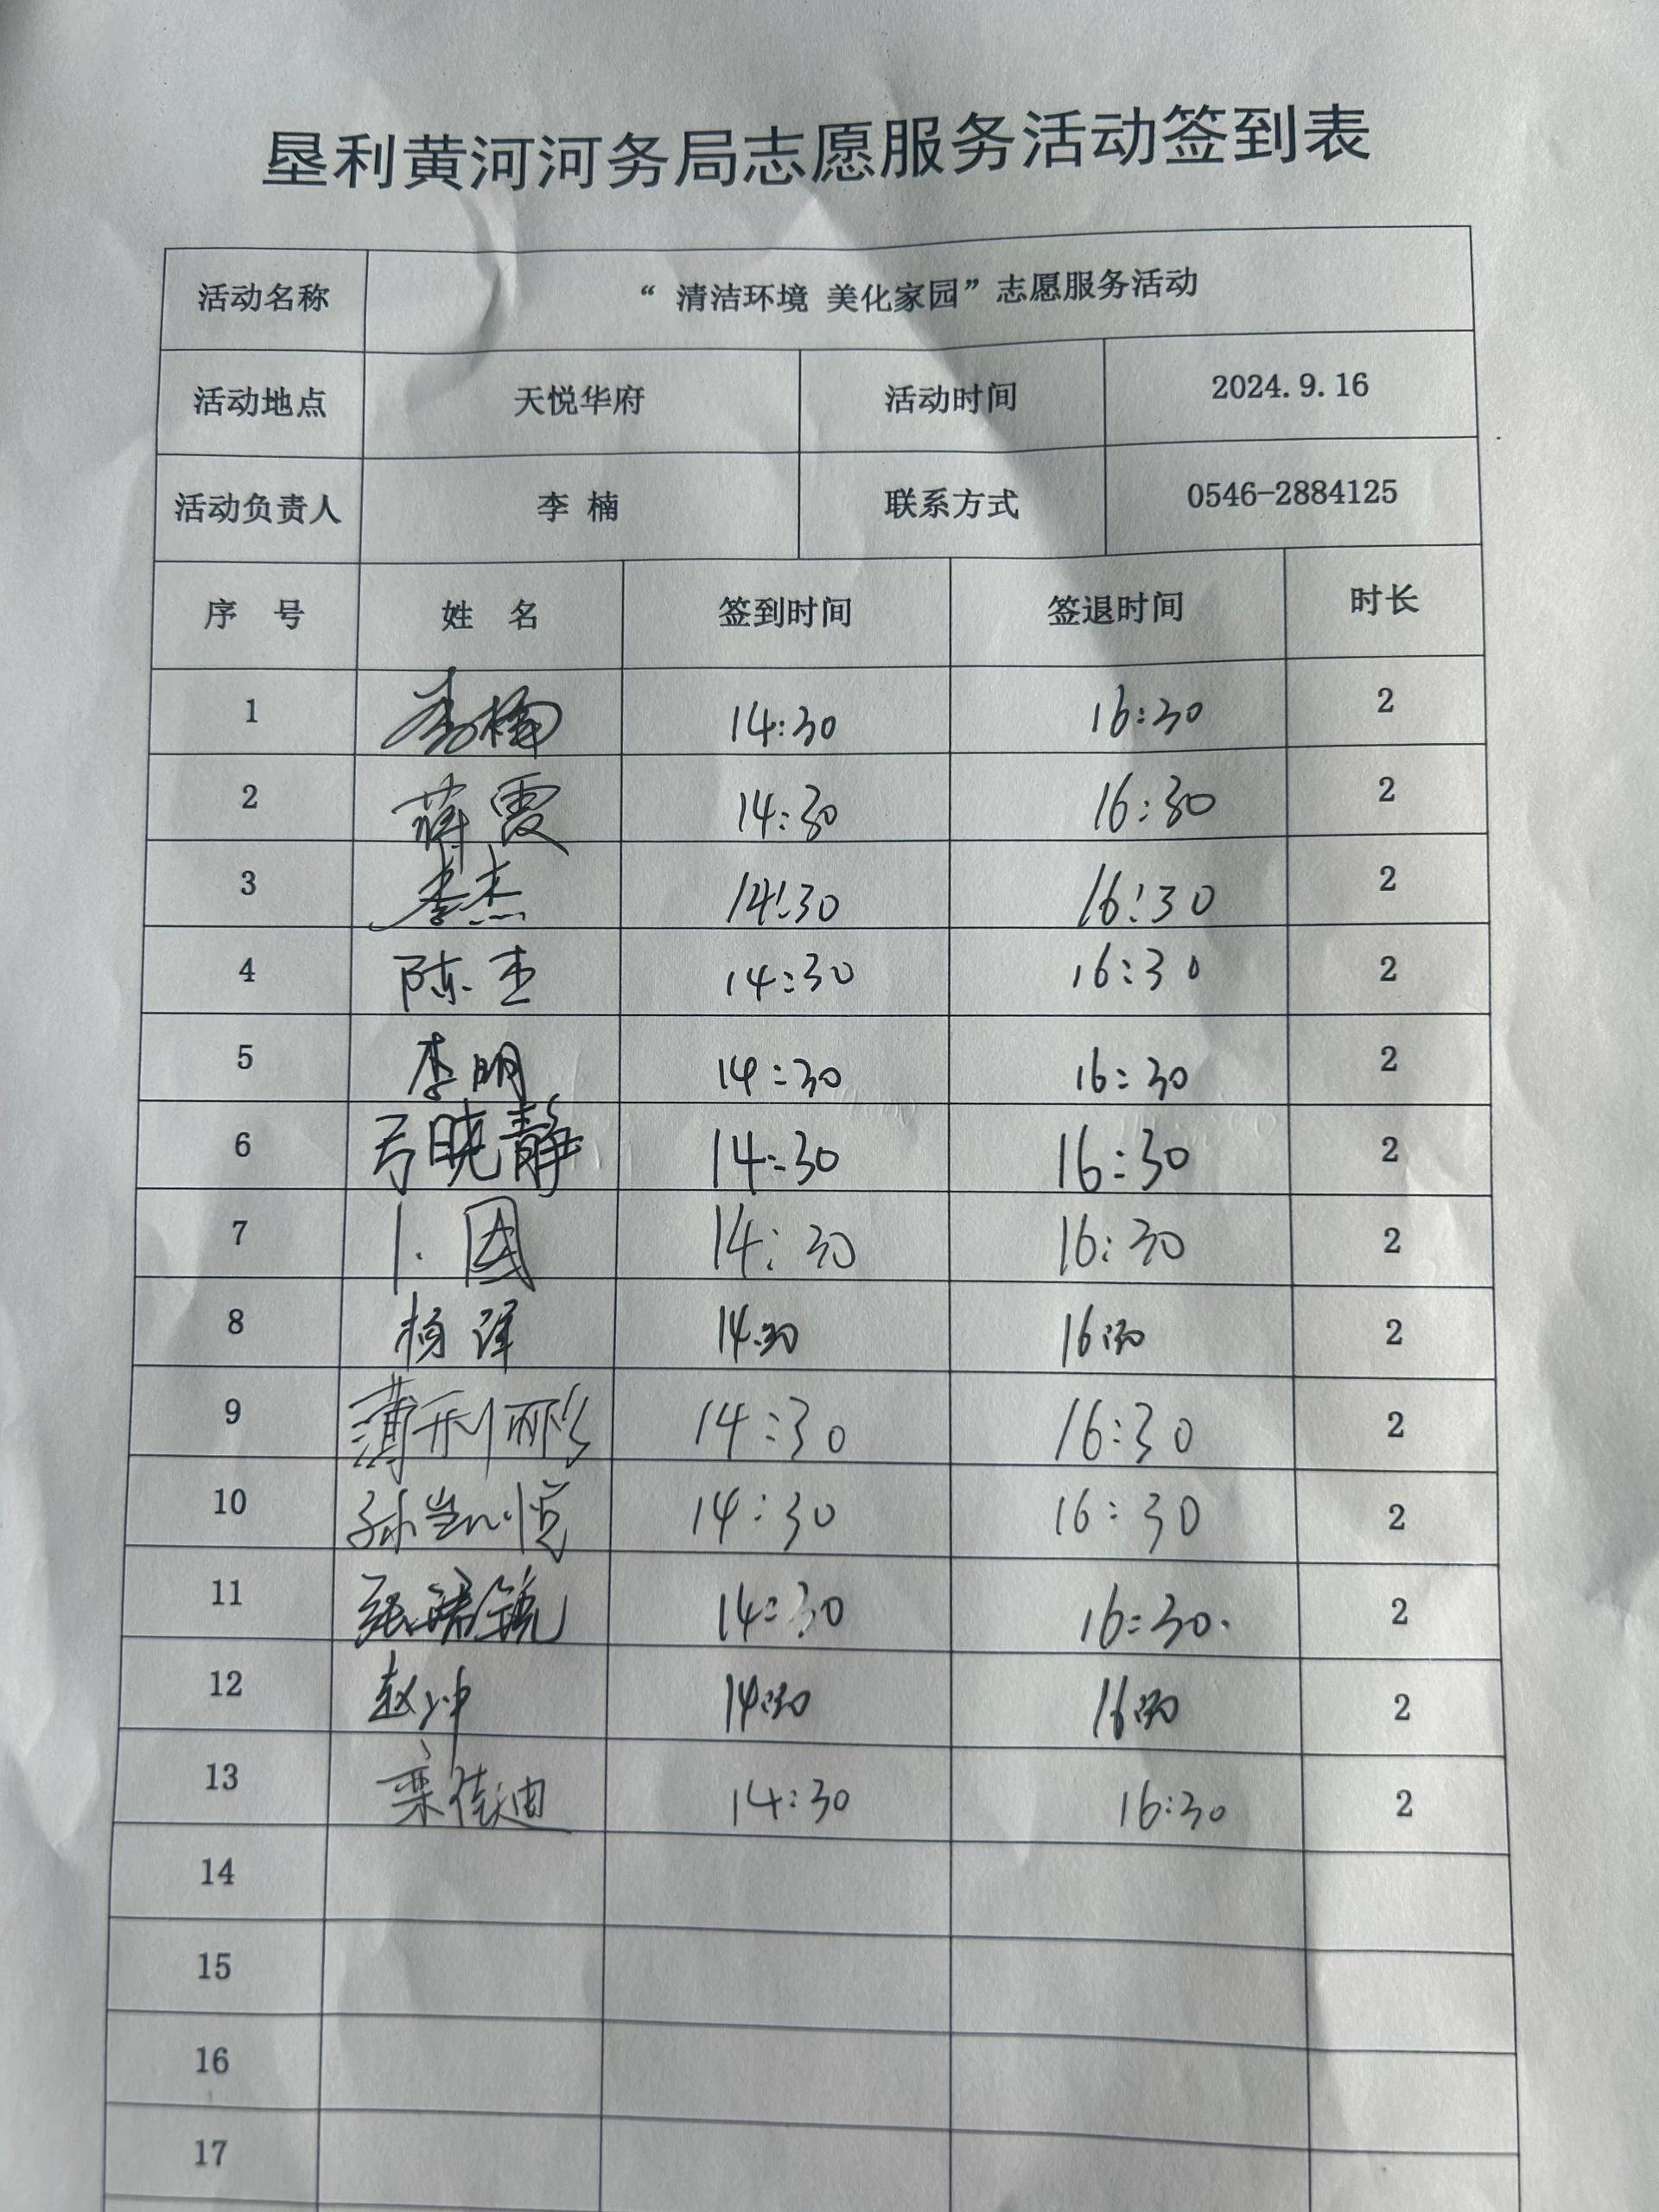 垦利黄河河务局志愿服务活动签到表
活动名称 “ 清洁环境 美化家园”志愿服务活动
活动地点 天悦华府 活动时间 2024.9.16
活动负责人 李 楠 联系方式 0546-2884125
序 号 姓 名 签到时间 签退时间 时长
1 李楠 14:30 16:30 2
2 蒋霞 14:30 16:30 2
3 李杰 14:30 16:30 2
4 陈 14:30 16:30 2
5 李明 14:30 16:30 2
6 晓静 14:30 16:30 2
7 14:30 16:30 2
8 杨译 14:30 16:30 2
9 薄利丽 14:30 16:30 2
10 孙凯悦 14:30 16:30 2
11 张 14:30 16:30 2
12 赵冲 14:30 16:30 2
13 栾倩迪 14:30 16:30 2
14
15
16
17